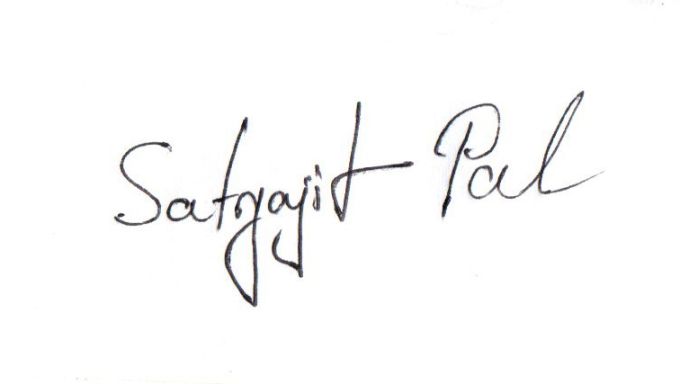 Satyajit Pal